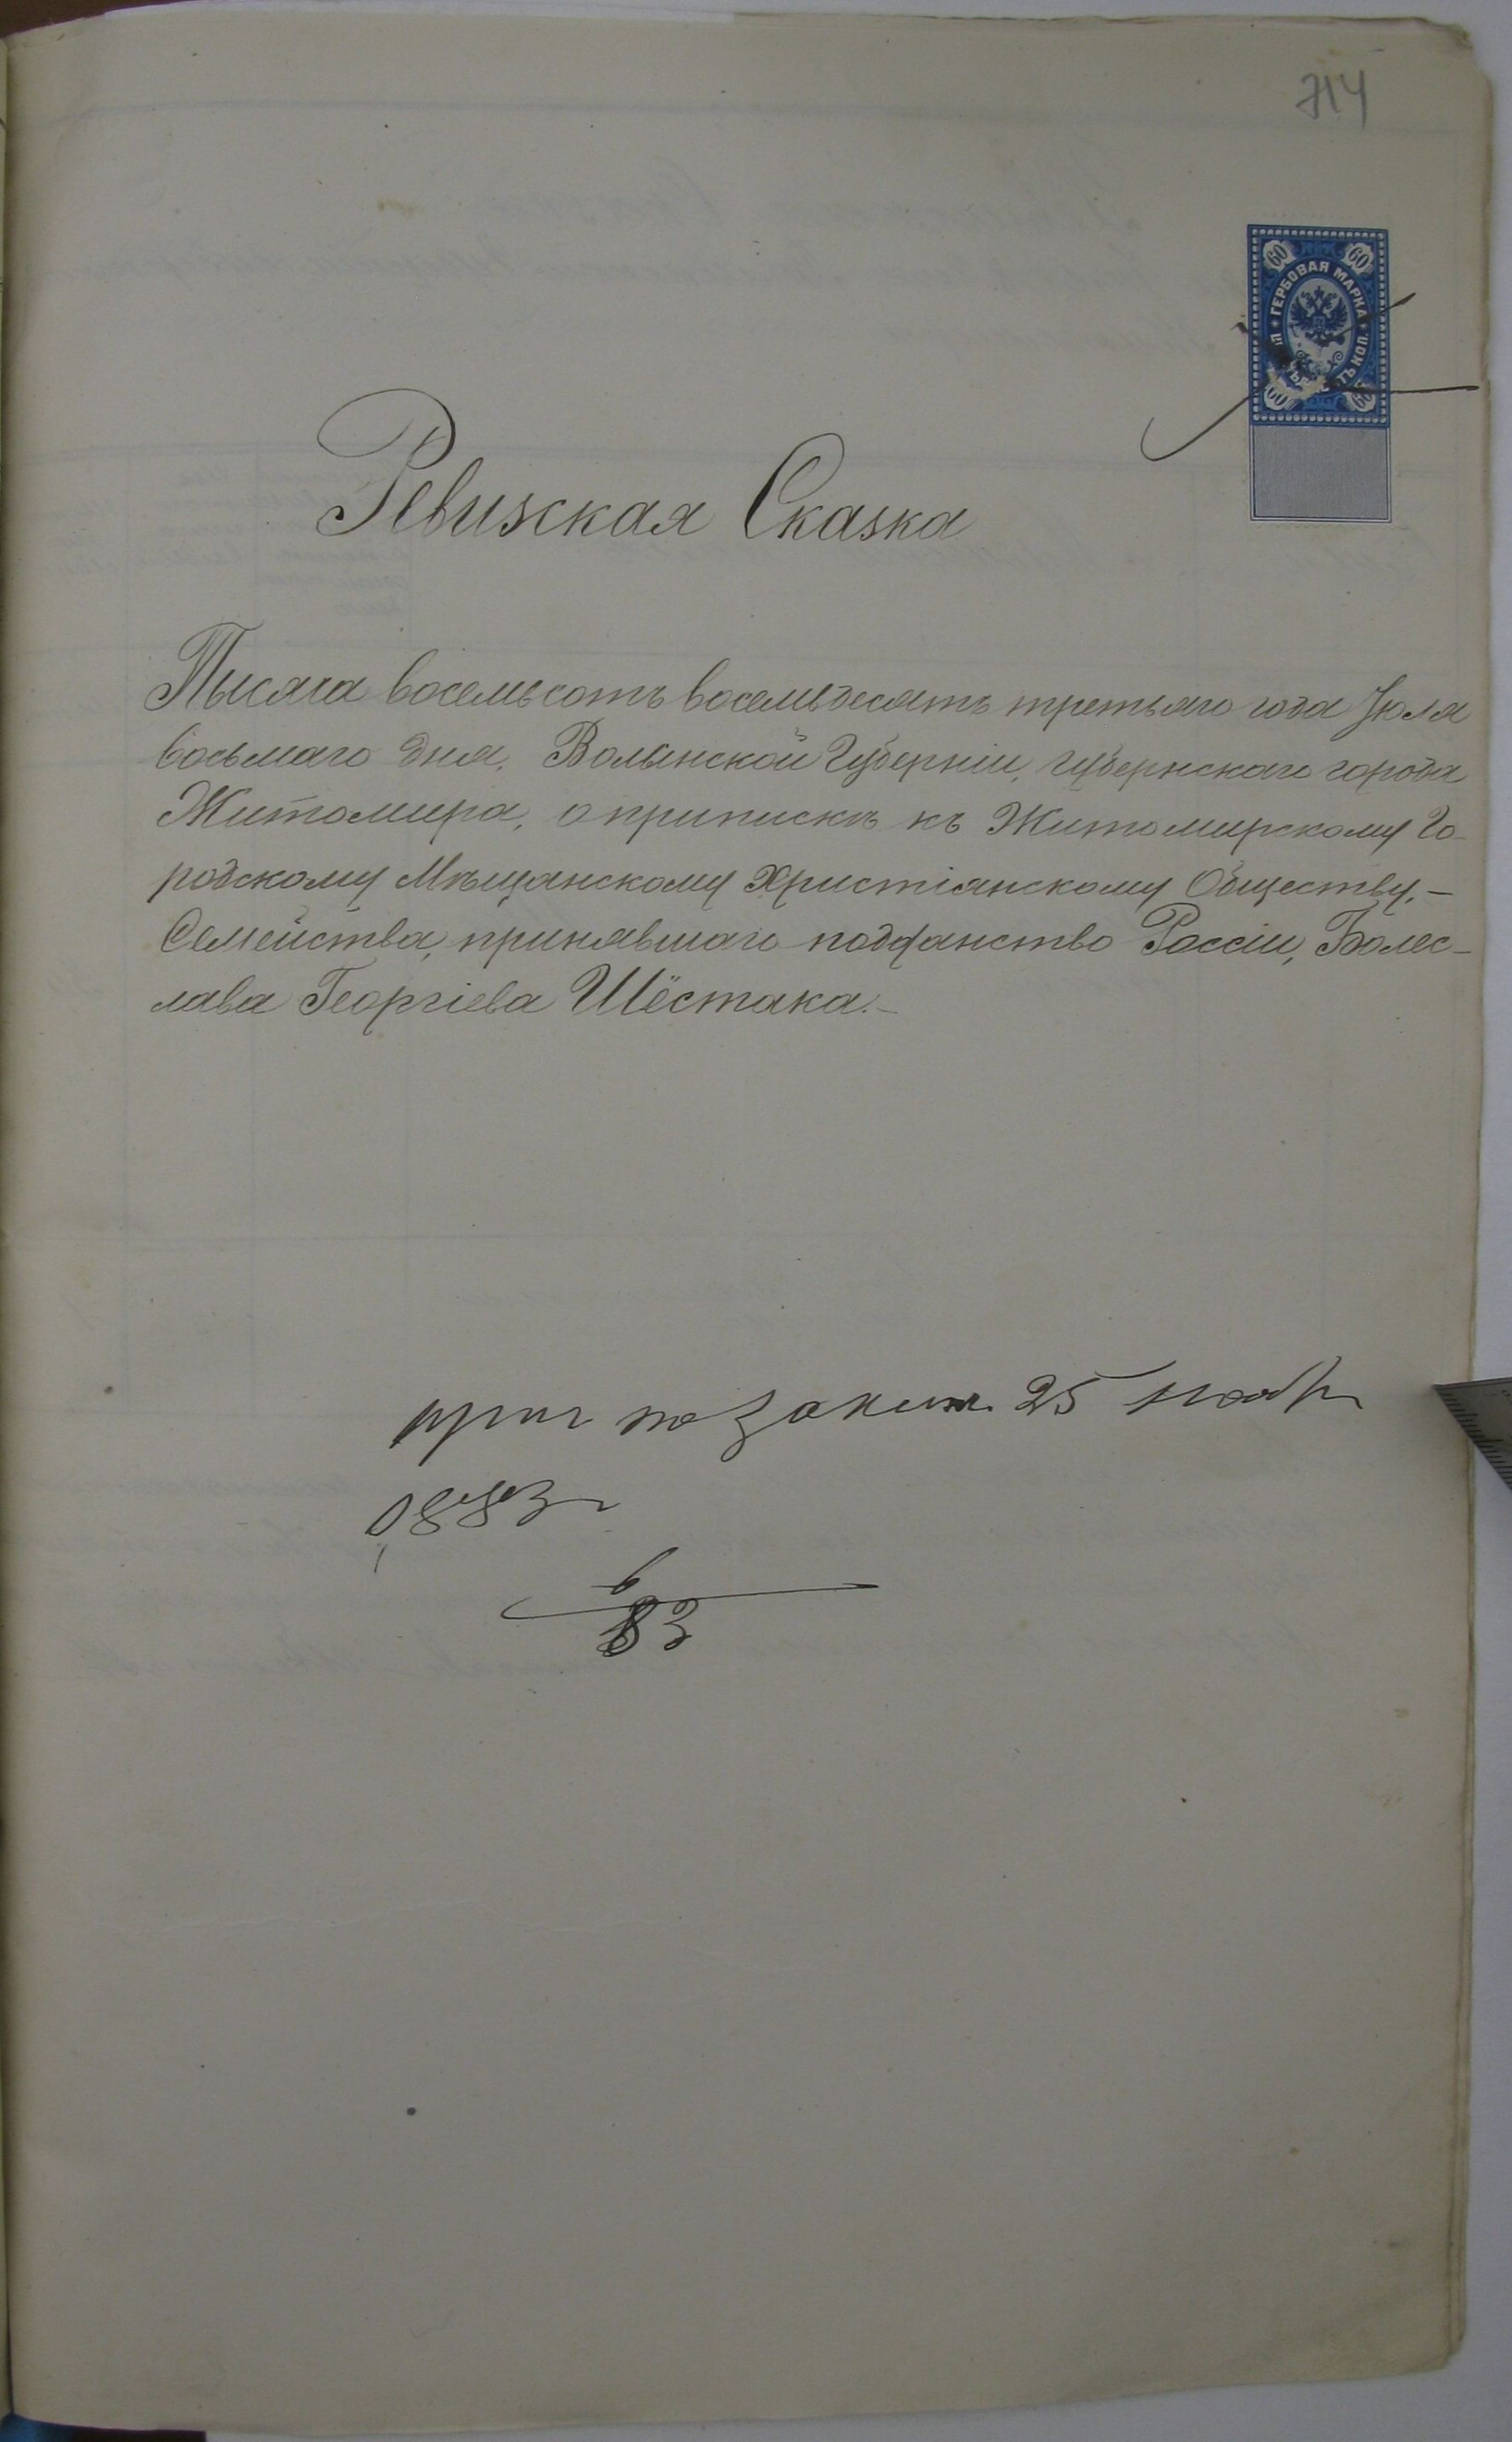 714
60 60
ГЕРБОВАЯ МАРКА
60 60
Ревизская Сказка
Тысяча восемьсотъ восемьдесятъ третьяго года Іюля
восьмаго дня, Волынской Губерніи, губернскаго города
Житомира, о припискѣ къ Житомирскому Го-
родскому Мѣщанскому Христіянскому Обществу,-
Семейства, принявшаго подданство Россіи, Болес-
лава Георгіева Шёстака.-
25 ноябр
1883 г
6
83